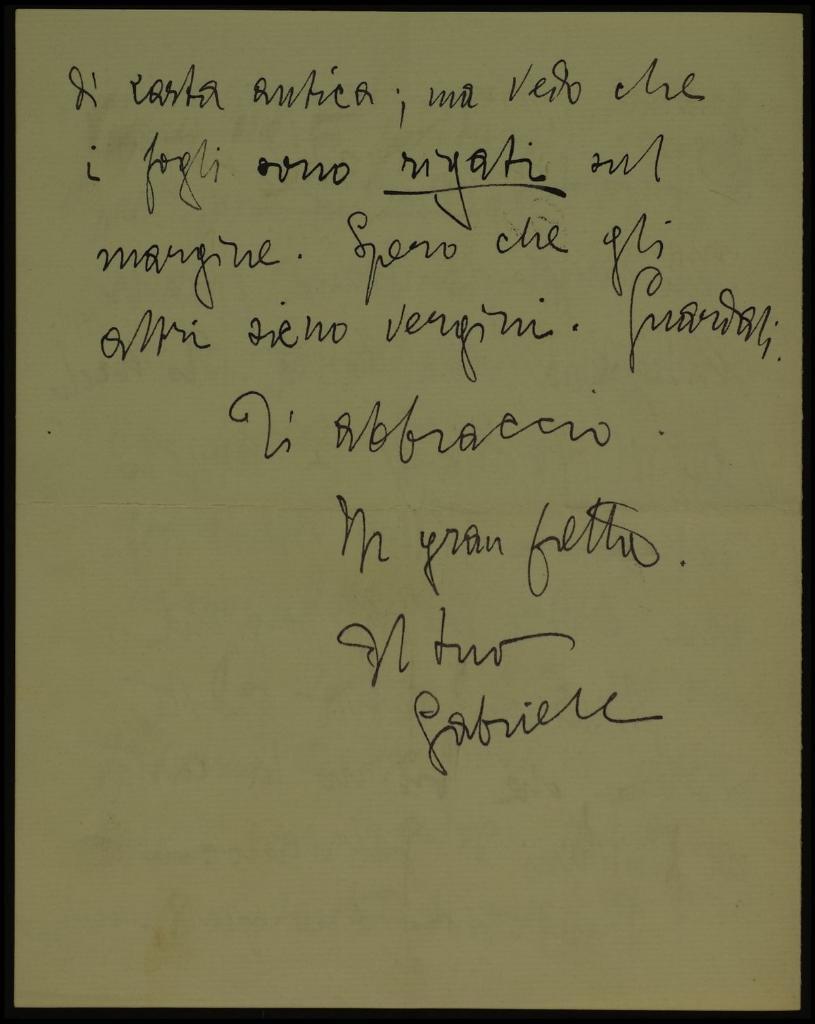 di carta antica; ma vedo che
i fogli sono rigati sul
margine. Spero che gli
altri sieno vergini. Guardali.
Ti abbraccio.
In gran fretta.
Il tuo
Gabriele